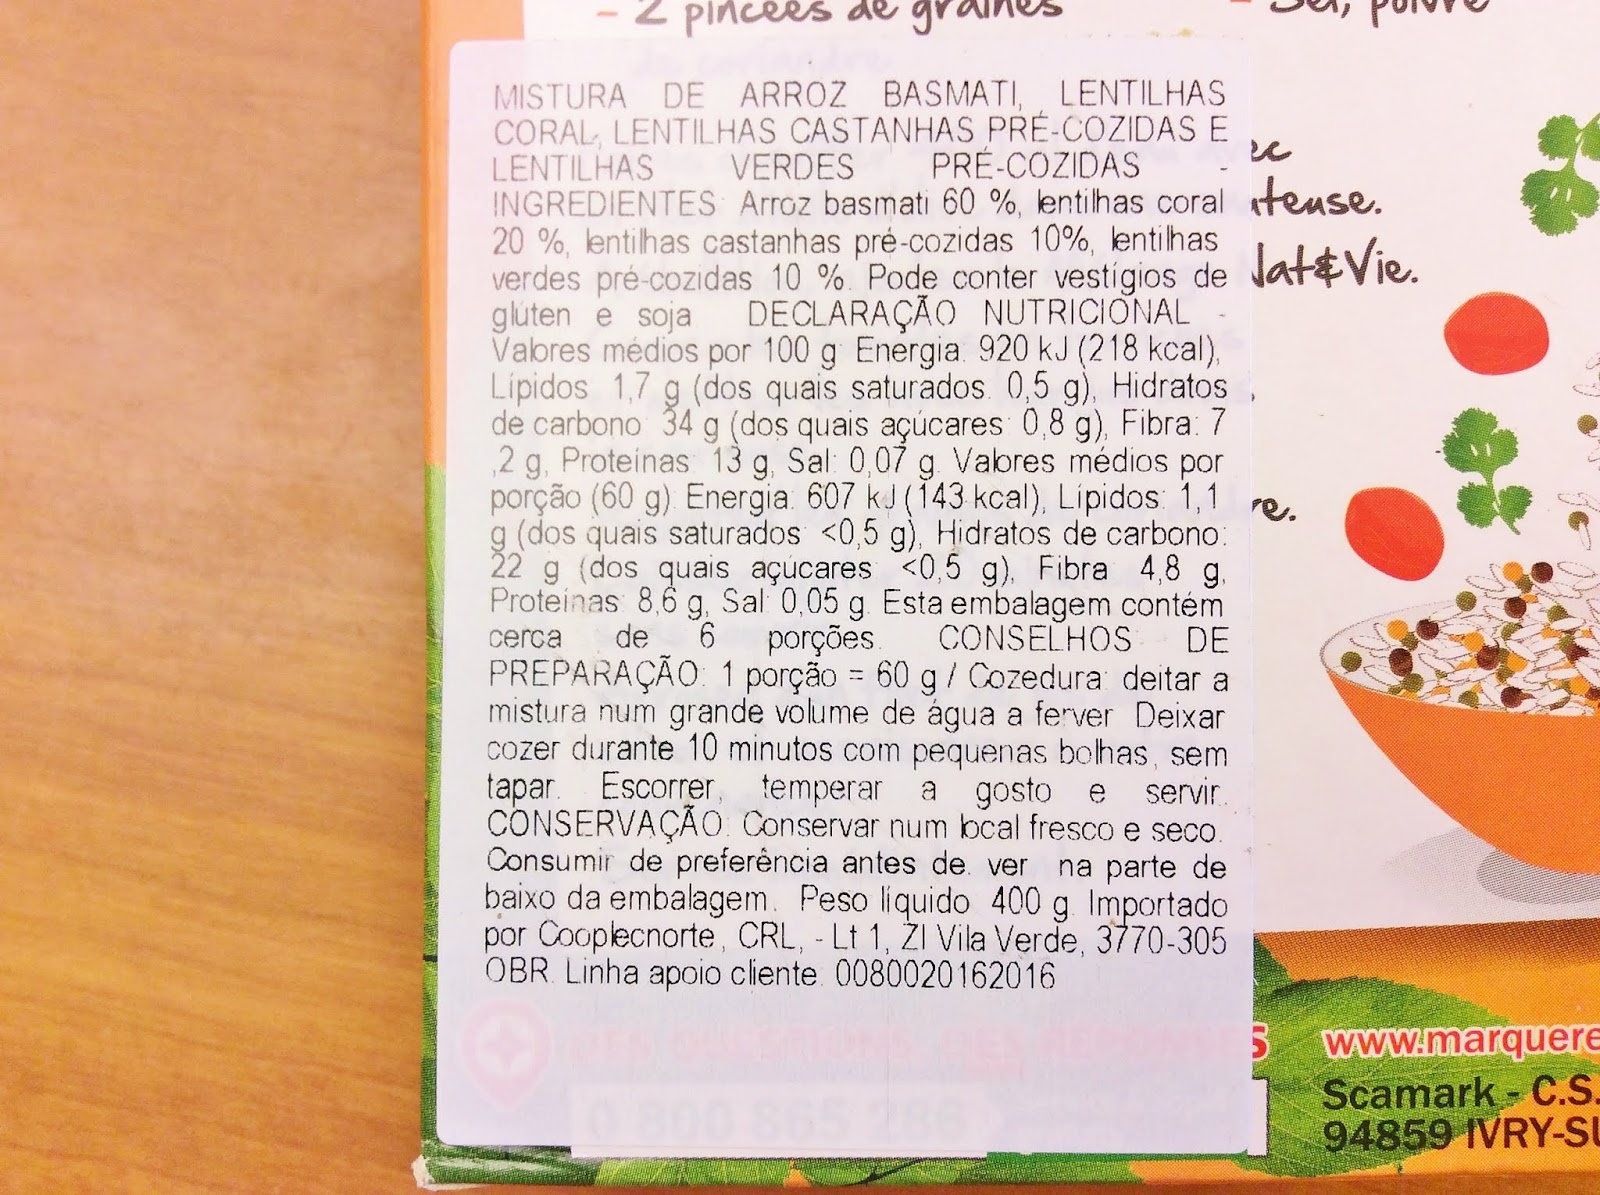 - 2 pincées de graines
- Sel, poivre
de coriandre
MISTURA DE ARROZ BASMATI, LENTILHAS
CORAL, LENTILHAS CASTANHAS PRÉ-COZIDAS E
LENTILHAS VERDES PRÉ-COZIDAS -
INGREDIENTES: Arroz basmati 60 %, lentilhas coral
20 %, lentilhas castanhas pré-cozidas 10%, lentilhas
verdes pré-cozidas 10 %. Pode conter vestígios de
glúten e soja DECLARAÇÃO NUTRICIONAL -
Valores médios por 100 g: Energia: 920 kJ (218 kcal),
Lípidos: 1,7 g (dos quais saturados: 0,5 g), Hidratos
de carbono: 34 g (dos quais açúcares: 0,8 g), Fibra: 7
,2 g, Proteínas: 13 g, Sal: 0,07 g. Valores médios por
porção (60 g): Energia: 607 kJ (143 kcal), Lípidos: 1,1
g (dos quais saturados: <0,5 g), Hidratos de carbono:
22 g (dos quais açúcares: <0,5 g), Fibra: 4,8 g,
Proteínas: 8,6 g, Sal: 0,05 g. Esta embalagem contém
cerca de 6 porções. CONSELHOS DE
PREPARAÇÃO: 1 porção = 60 g / Cozedura: deitar a
mistura num grande volume de água a ferver. Deixar
cozer durante 10 minutos com pequenas bolhas, sem
tapar. Escorrer, temperar a gosto e servir.
CONSERVAÇÃO: Conservar num local fresco e seco.
Consumir de preferência antes de: ver na parte de
baixo da embalagem. Peso líquido: 400 g. Importado
por Cooplecnorte, CRL, - Lt 1, ZI Vila Verde, 3770-305
OBR. Linha apoio cliente: 0080020162016
ec
ntense.
Nat&Vie.
re.
0 800 865 286
www.marquere
Scamark - C.S.
94859 IVRY-SU